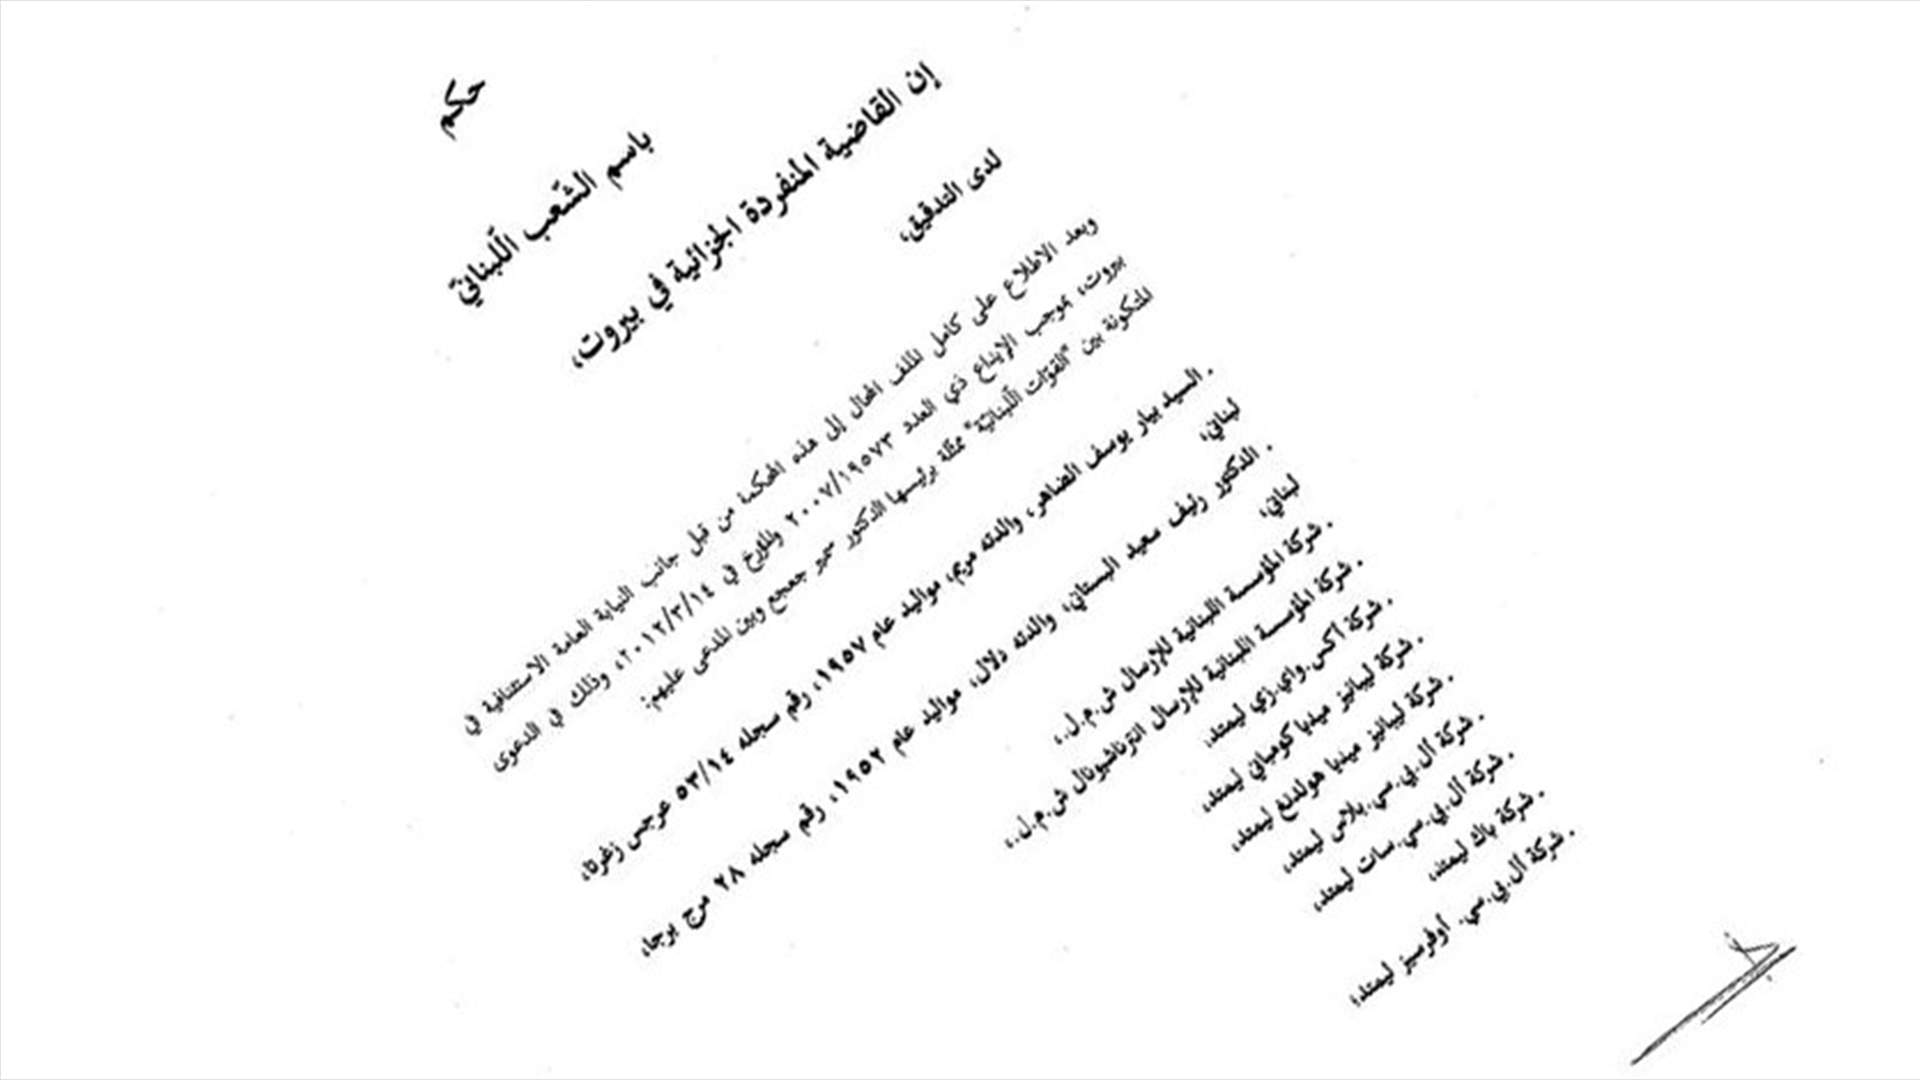 حكم
باسم الشّعب اللّبنانيّ
إن القاضية المنفردة الجزائية في بيروت،
لدى التدقيق،
وبعد الاطلاع على كامل الملف المحال إلى هذه المحكمة من قبل جانب النيابة العامة الاستئنافية في
بيروت، بموجب الإيداع ذي العدد ٢٠٠٧/١٩٥٧٣ والمؤرخ في ٢٠١٢/٣/١٤، وذلك في الدعوى
المتكونة بين "القوّات اللّبنانيّة" ممثلة برئيسها الدكتور سمير جعجع وبين المدعى عليهم:
. السيد بيار يوسف الضاهر، والدته مريم، مواليد عام ١٩٥٧، رقم سجله ٥٣/١٤ عرجس زغرتا،
لبناني،
. الدكتور رئيف سعيد البستاني، والدته دلال، مواليد عام ١٩٥٢، رقم سجله ٢٨ مرج برجا،
لبناني،
. شركة المؤسسة اللبنانية للإرسال ش.م.ل.،
. شركة المؤسسة اللبنانية للإرسال انترناشيونال ش.م.ل.،
. شركة أكس.واي.زي ليمتد،
. شركة ليبانيز ميديا كومباني ليمتد،
. شركة ليبانيز ميديا هولدنغ ليمتد،
. شركة ال.بي.سي.بلاس ليمتد،
. شركة ال.بي.سي.سات ليمتد،
. شركة باك ليمتد،
. شركة ال.بي.سي. اوفرسيز ليمتد،